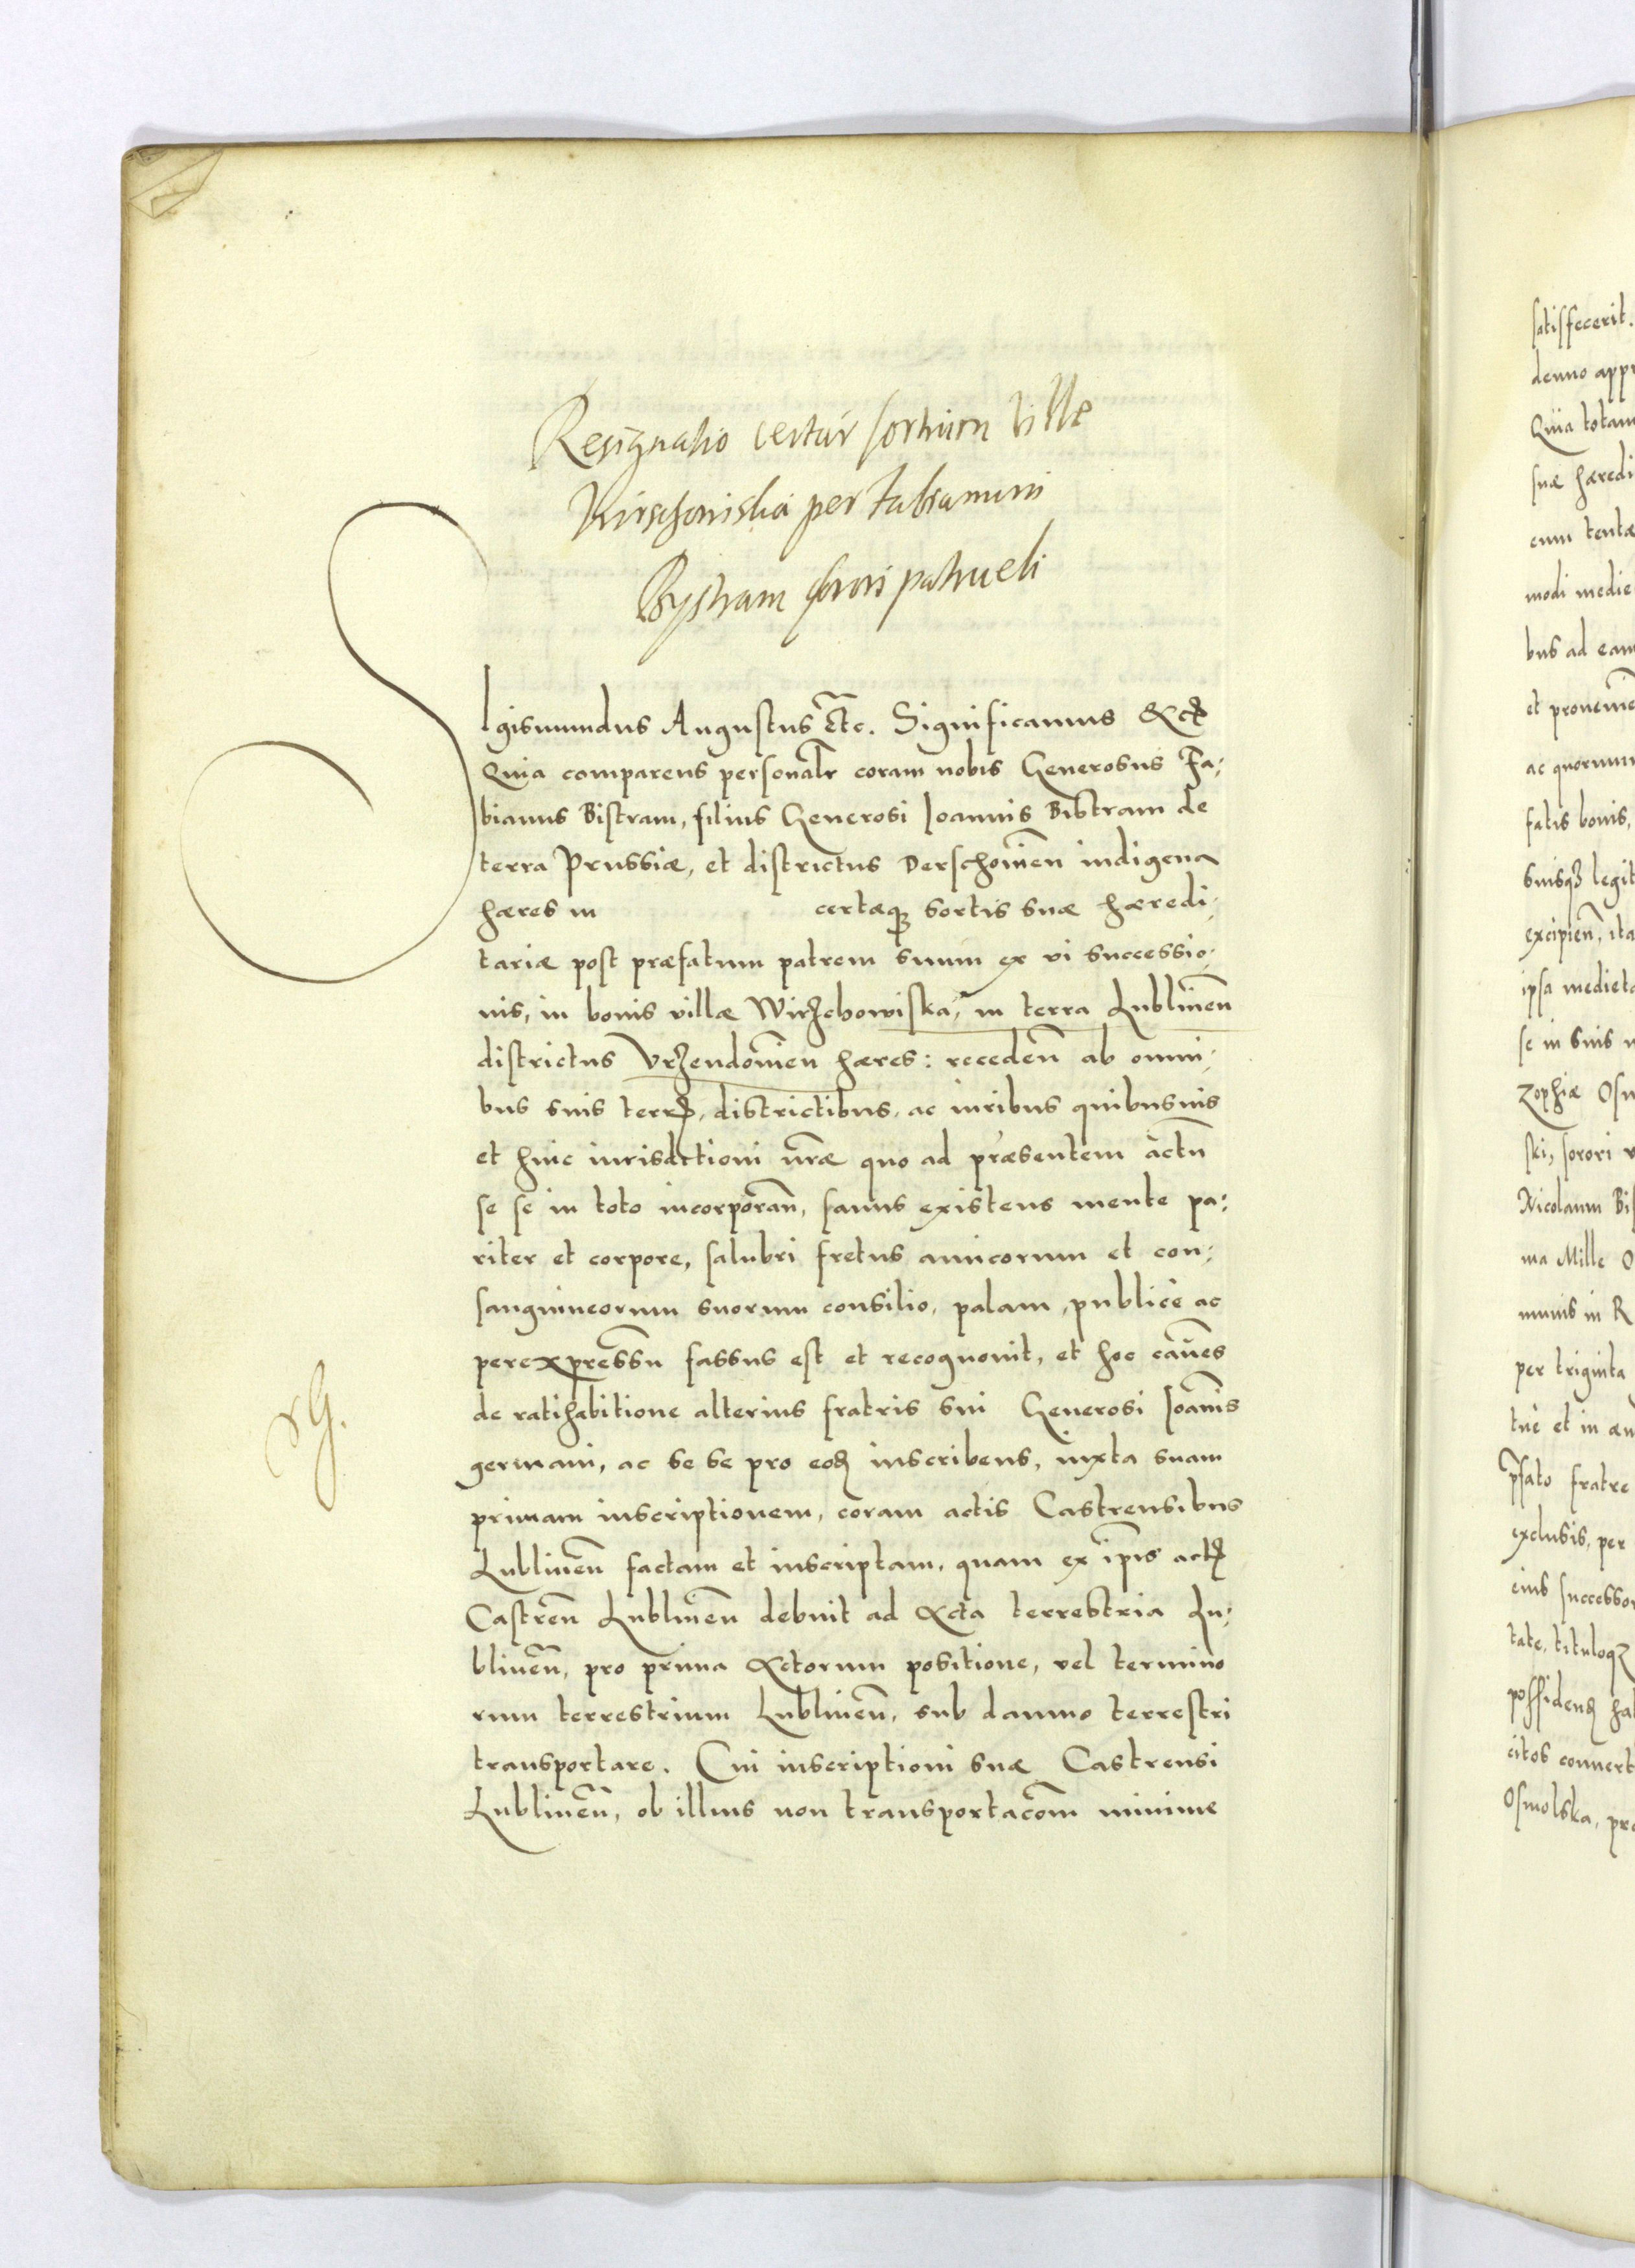 Resignatio certar sortium ville
Wirschoviska per Fabianum
Bystram sorori patrueli
Sigismundus Augustus etc. Significamus &c
Quia comparens personalr coram nobis Generosus Fa-
bianus Bistram, filius Generosi Ioannis Bistram de
terra Prussiæ, et districtus Derschovien indigena
hæres in certæq3 sortis suæ hæredi-
tariæ post præfatum patrem suum ex vi successio-
nis, in bonis villæ Wirzchowiska, in terra Lublinen
districtus Vrzendovien hæres: receden ab omni-
bus suis terris, districtibus, ac iuribus quibusuis
et huic iurisdictioni nræ quo ad præsentem actu
se se in toto incorporan, sanus existens mente pa-
riter et corpore, salubri fretus amicorum et con-
sanguineorum suorum consilio, palam, publicè ac
perexpressu fassus est et recognouit, et hoc caues
de ratihabitione alterius fratris sui Generosi Ioanis
germani, ac se se pro eod inscribens, iuxta suam
primam inscriptionem, coram actis Castrensibus
Lublinen factam et inscriptam, quam ex ipis actis
Castren Lublinen debuit ad Acta terrestria Lu-
blinen, pro prima Actorum positione, vel termino
rum terrestrium Lublinen, sub damno terrestri
transportare. Cui inscriptioni suæ Castrensi
Lublinen, ob illius non transportacom minime
satisfecerit.
denuo app
Quia totam
suæ hæredi
cum tentæ
modi medie
bus ad eam
et prouenie
ac quorum
fatis bonis,
suisq3 legit
excipien, ita
ipsa medieta
se in suis
Zophiæ Osm
ski, sorori
Nicolaum Bis
ma Mille
munis in R
per triginta
tuè et in æu
pfato fratre
exclusis, per
eius successo
tate, tituloq3
possidend ha
citos conuert
Osmolska, pr